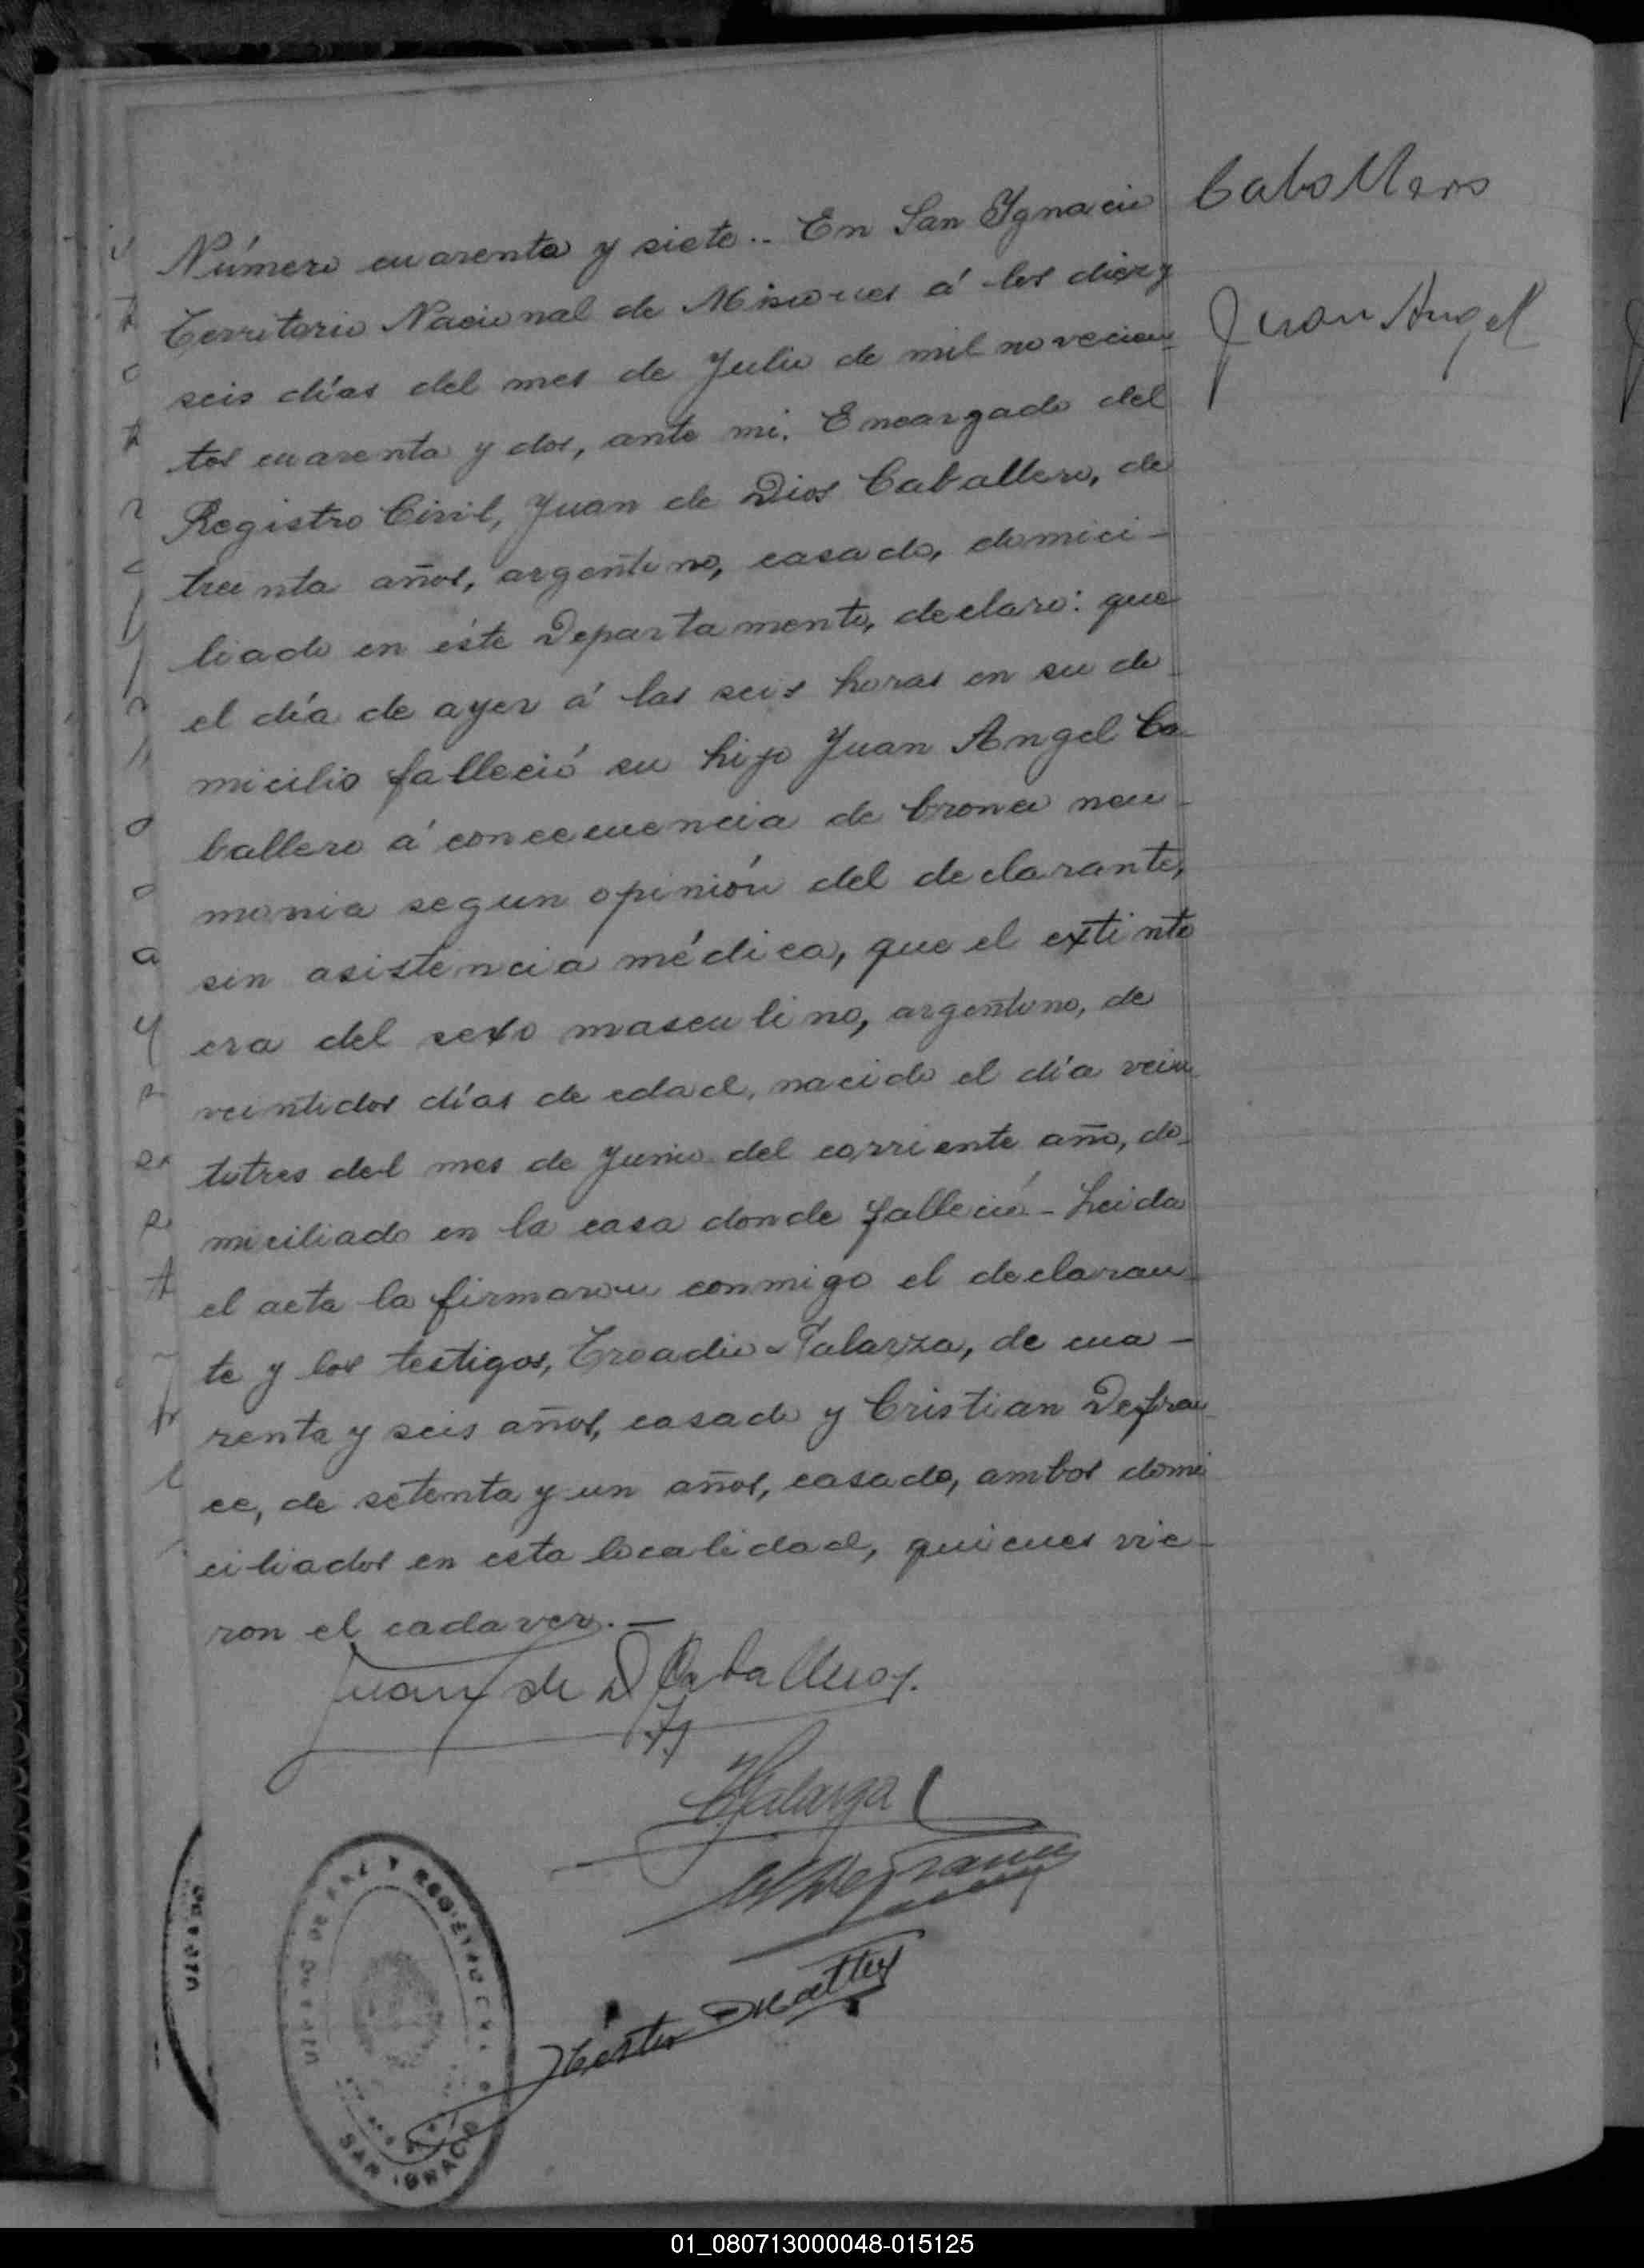 Caballero
Juan Angel
Número cuarenta y siete.. En San Ygnacio
Territorio Nacional de Misiones á los diez y
seis días del mes de Julio de mil novecien-
tos cuarenta y dos, ante mi, Encargado del
Registro Civil, Juan de Dios Caballero, de
treinta años, argentino, casado, domici-
liado en éste Departamento, declaro: que
el día de ayer á las seis horas en su do-
micilio falleció su hijo Juan Angel Ca-
ballero á concecuencia de bronco neu-
monia segun opinión del declarante,
sin asistencia médica, que el extinto
era del sexo masculino, argentino, de
veintidos días de edad, nacido el día vein-
titres del mes de Junio del corriente año, do-
miciliado en la casa donde falleció - Leida
el acta la firmaron conmigo el declaran-
te y los testigos, Troadio Galarza, de cua-
renta y seis años, casado y Cristian Defran-
ce, de setenta y un años, casado, ambos domi
ciliados en esta localidad, quienes vie-
ron el cadaver.-
Juan de D Caballero
Galarza
Defrance
REGISTRO CIVIL
SAN IGNACIO
01_080713000048-015125